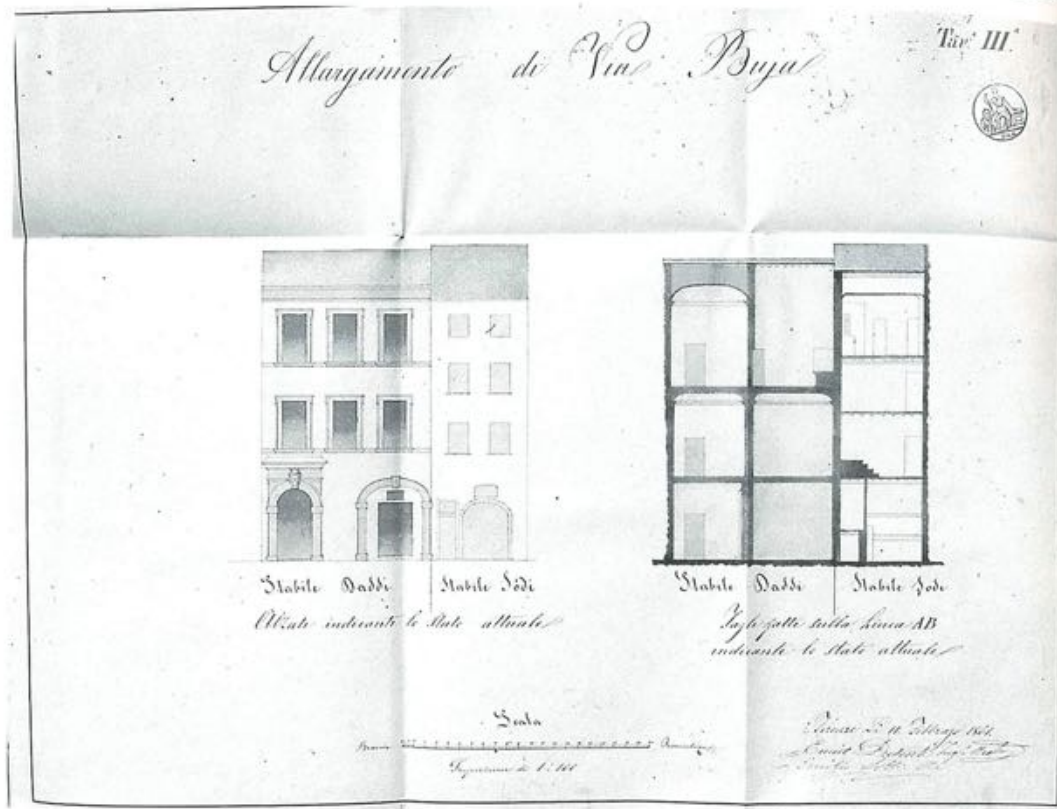 Allargamento di Via Buja
Tav.ª III.ª
Stabile Daddi
Stabile Sodi
Alzato indicante lo Stato attuale
Stabile Daddi
Stabile Sodi
Taglio fatto sulla Linea AB
indicante lo stato attuale
Scala
Braccia
di 1:100
Firenze Li 11 Febbrajo